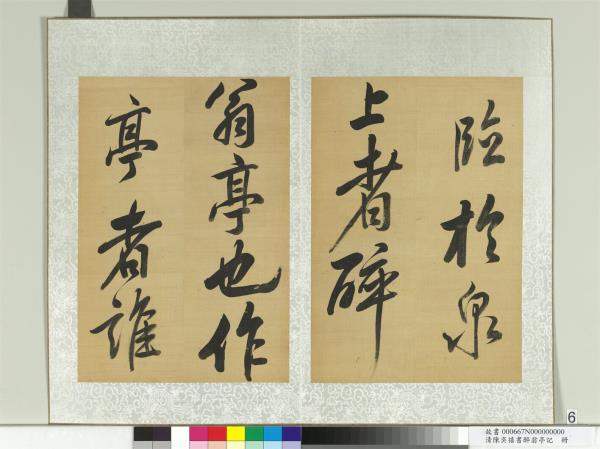 臨於泉
上者醉
翁亭也作
亭者誰
6
故書000667N000000000
清陳奕禧書醉翁亭記 冊